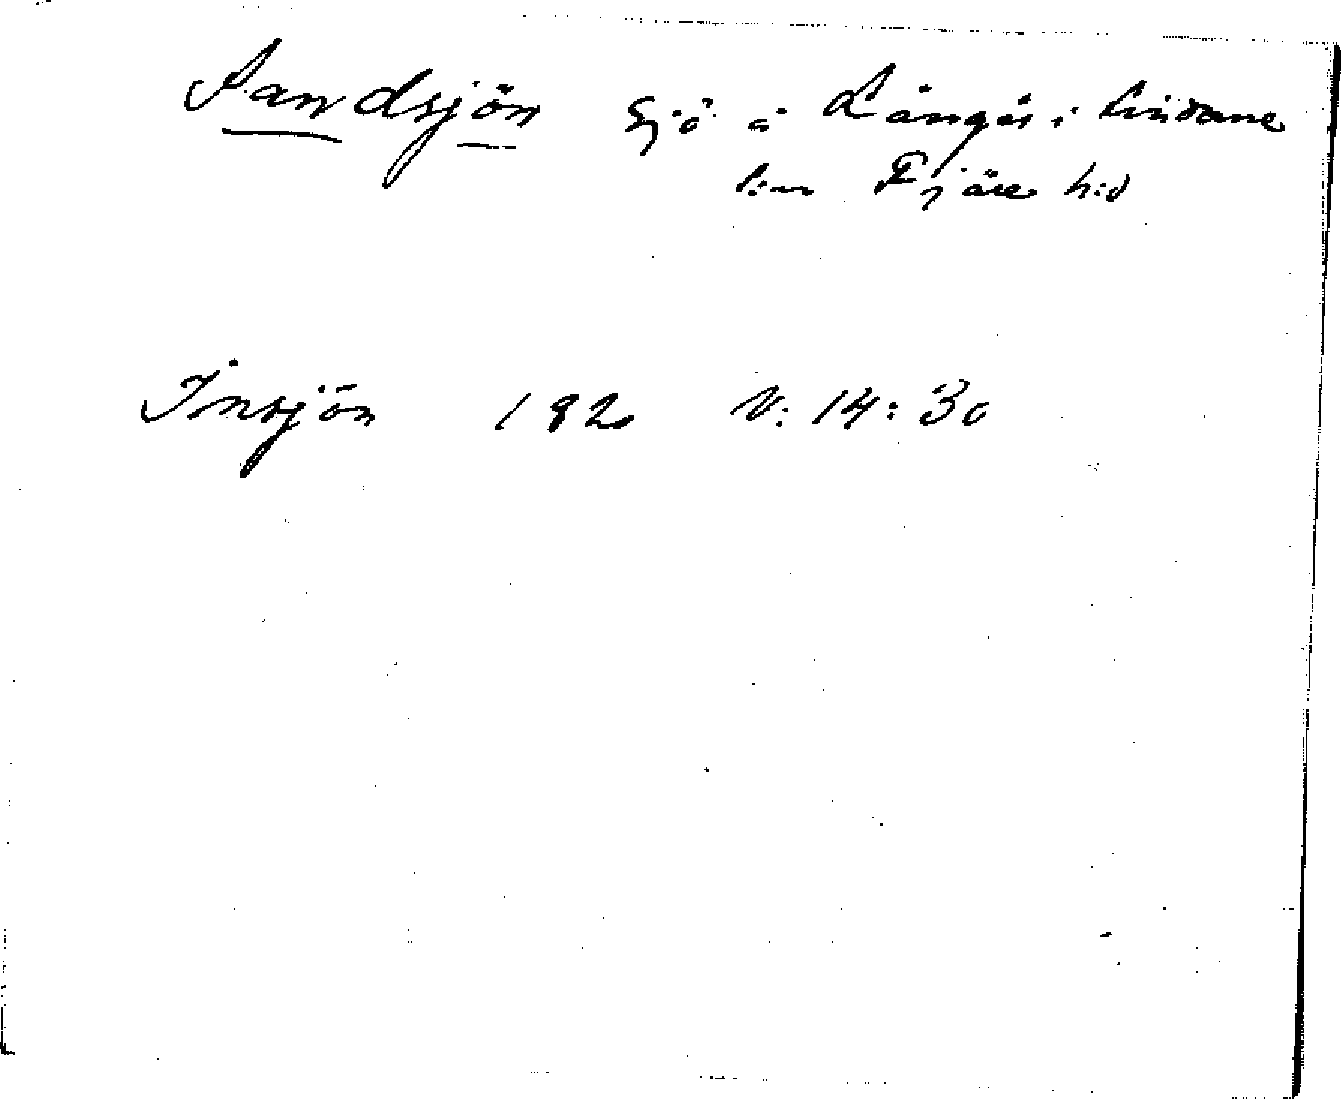 Sandsjön Sjö å Långås i Lindome
l:n Fjäre h:d
Insjön 182 V: 14: 30